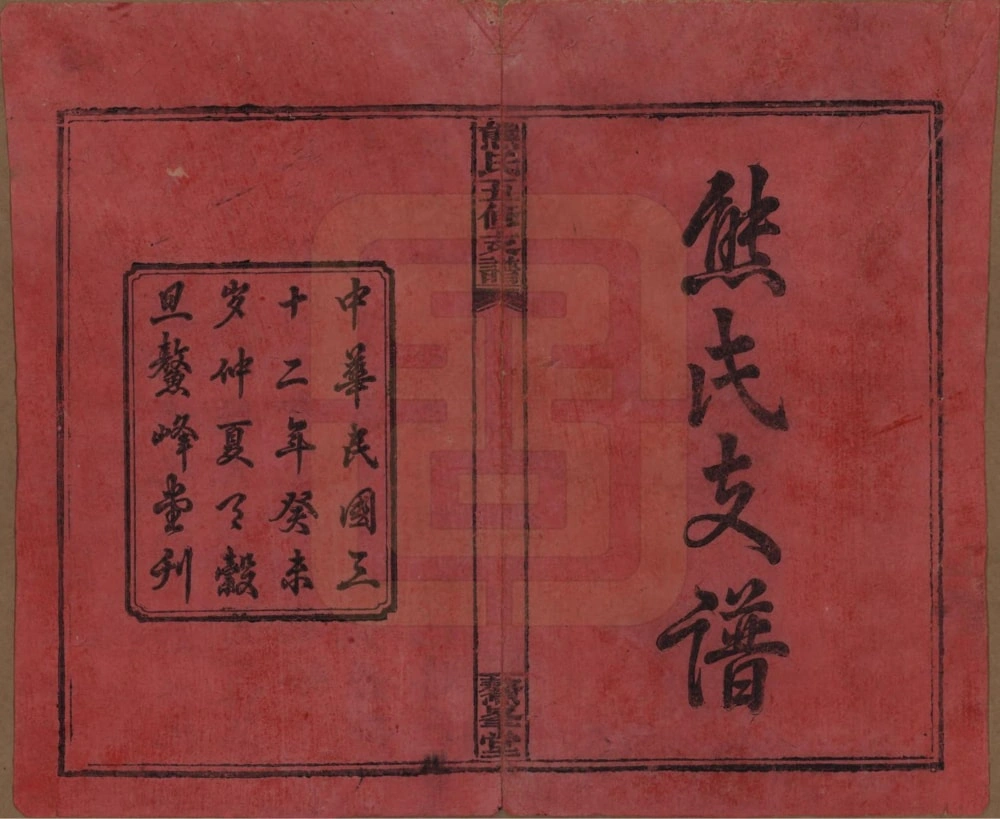 熊氏支譜
熊氏五修支譜
鰲峯堂
中華民國三
十二年癸未
岁仲夏之穀
旦鰲峰堂刋